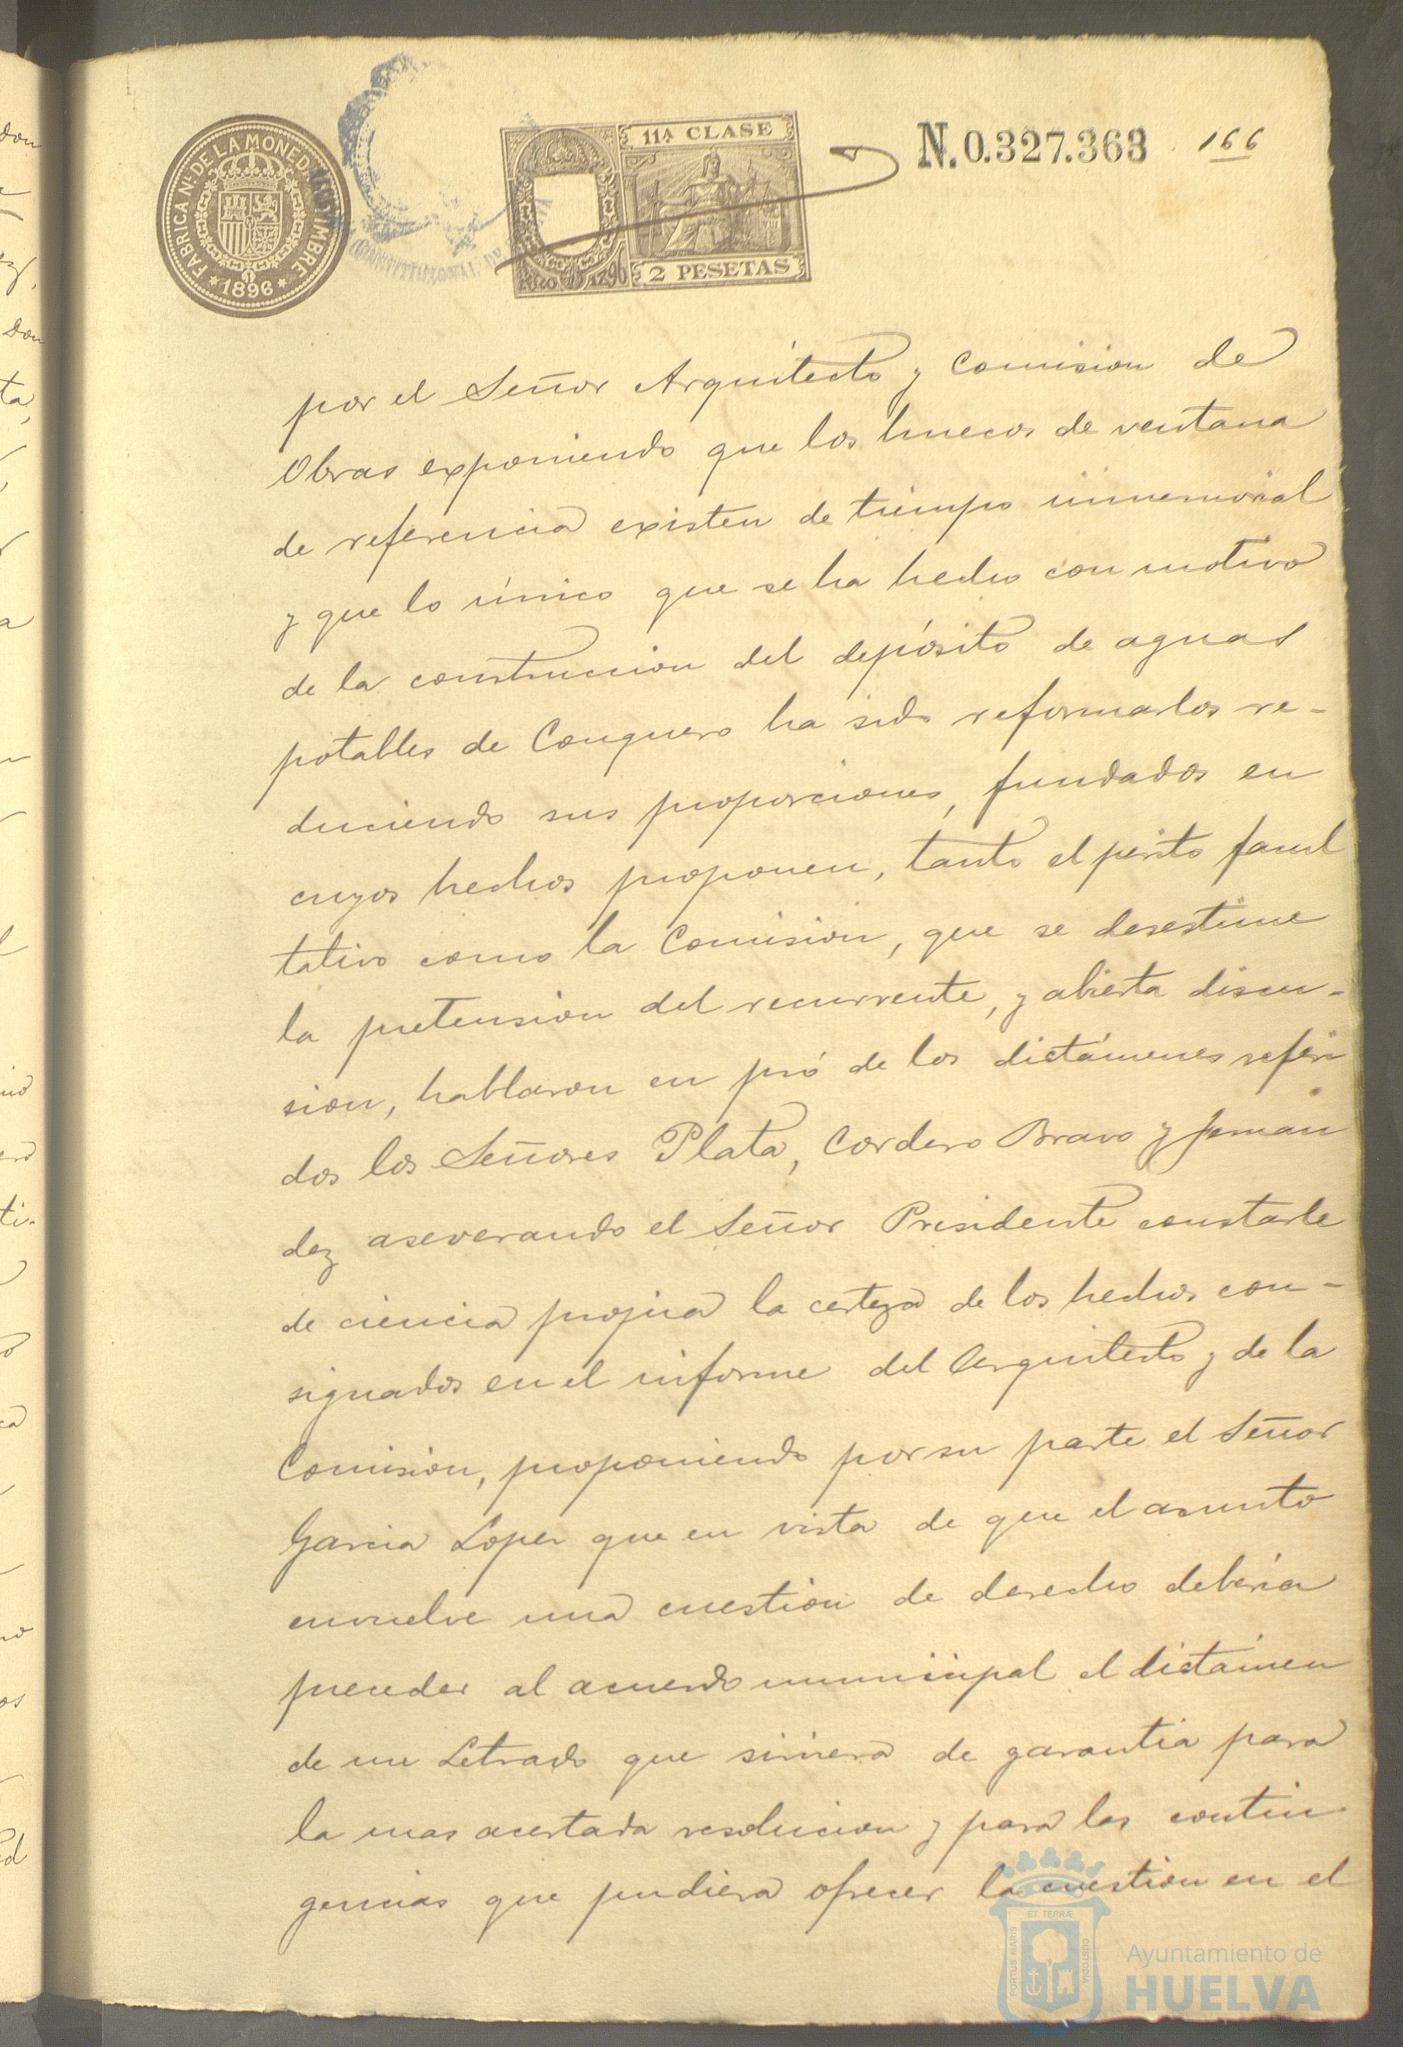 FABRICA NL. DE LA MONEDA Y TIMBRE
* 1896 *
CONSTITUCIONAL DE
11ª CLASE
2 PESETAS
N.0.327.363
166
por el Señor Arquitecto y Comision de
Obras exponiendo que los huecos de ventana
de referencia existen de tiempo inmemorial
y que lo único que se ha hecho con motivo
de la construccion del depósito de aguas
potables de Conquero ha sido reformarlos re-
duciendo sus proporciones, fundados en
cuyos hechos proponen, tanto el perito facul
tativo como la Comision, que se desestime
la pretension del recurrente, y abierta discu-
sion, hablaron en pró de los dictámenes referi
dos los Señores Plata, Cordero Bravo y Fernan
dez aseverando el Señor Presidente constarle
de ciencia propia la certeza de los hechos con-
signados en el informe del Arquitecto y de la
Comision, proponiendo por su parte el Señor
Garcia Lopez que en vista de que el asunto
envuelve una cuestion de derecho deberia
preceder al acuerdo municipal el dictámen
de un Letrado que sirviera de garantia para
la mas acertada resolucion y para las contin
gencias que pudiera ofrecer la cuestion en el
PORTUS MARIS
ET TERRÆ
CUSTODIA
Ayuntamiento de
HUELVA